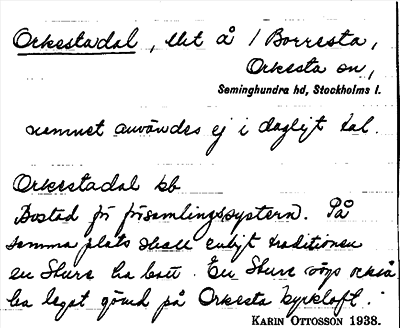 Orkestadal, ttet å 1 Borresta,
Orkesta sn,
Seminghundra hd, Stockholms l.
namnet användes ej i dagligt tal.
Orkestadal bb
Bostad för församlingssystern. På
samma plats skall enligt traditionen
en Sture ha bott. En Sture sägs också
ha legat gömd på Orkesta kyrkloft.
KARIN OTTOSSON 1938.